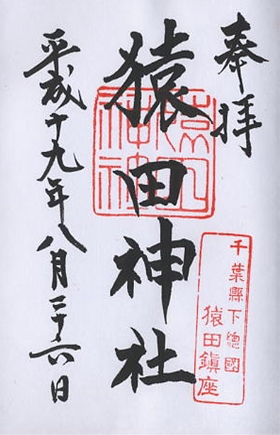 奉拝
千葉縣下總國
猿田鎮座
猿田神社
猿田神社
平成十九年八月二十六日